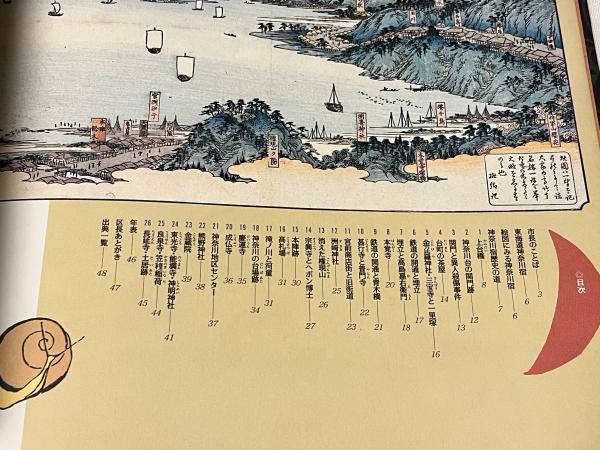 ◎目次
市長のことば 3
東海道神奈川宿
絵図にみる神奈川宿 6
神奈川宿歴史の道 7
1 上台橋 8
2 神奈川台の関門跡 12
3 関門と異人殺傷事件 13
4 台町の茶屋 14
5 金刀比羅神社・三宝寺と一里塚 16
6 鉄道の開通と埋立 17
7 埋立と高島嘉右衛門 18
8 本覚寺 20
9 鉄道の開通と青木橋 21
10 甚行寺と普門寺 22
11 宮前商店街と旧街道 23
12 洲崎神社 25
13 消えた権現山 26
14 宗興寺とヘボン博士 27
15 本陣跡 30
16 高札場 31
17 滝ノ川と荷車 31
18 神奈川の台場跡 34
19 慶運寺 35
20 成仏寺 36
21 神奈川地区センター 37
22 熊野神社 38
23 金蔵院 39
24 東光寺・能満寺・神明神社 41
25 良泉寺・笠䅣稲荷 44
26 長延寺・土居跡 45
年表 46
区長あとがき 47
出典一覧 48